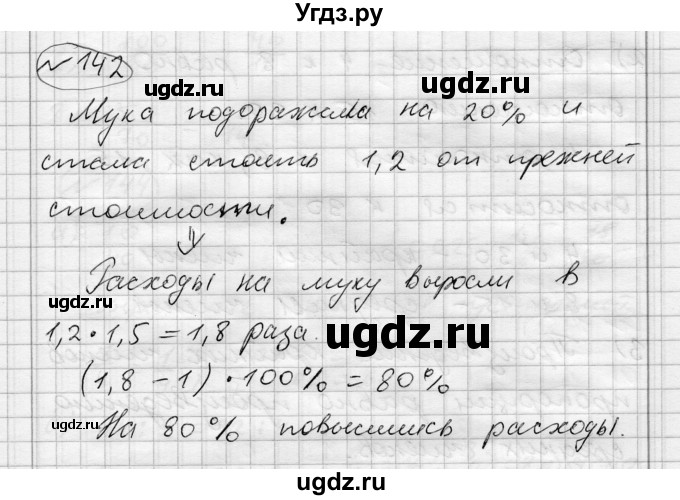 Угдз.ру
№142
ugdz.ru ugdz.ru
Мука подоражала на 20% и
стала стоить 1,2 от прежней
стоимости.
⇓
Расходы на муку выросли в
ugdz.ru
1,2 · 1,5 = 1,8 раза.
ugdz.ru
(1,8 - 1) · 100% = 80%
На 80% повысились расходы.
ugdz.ru ugdz.ru
Угдз.ру